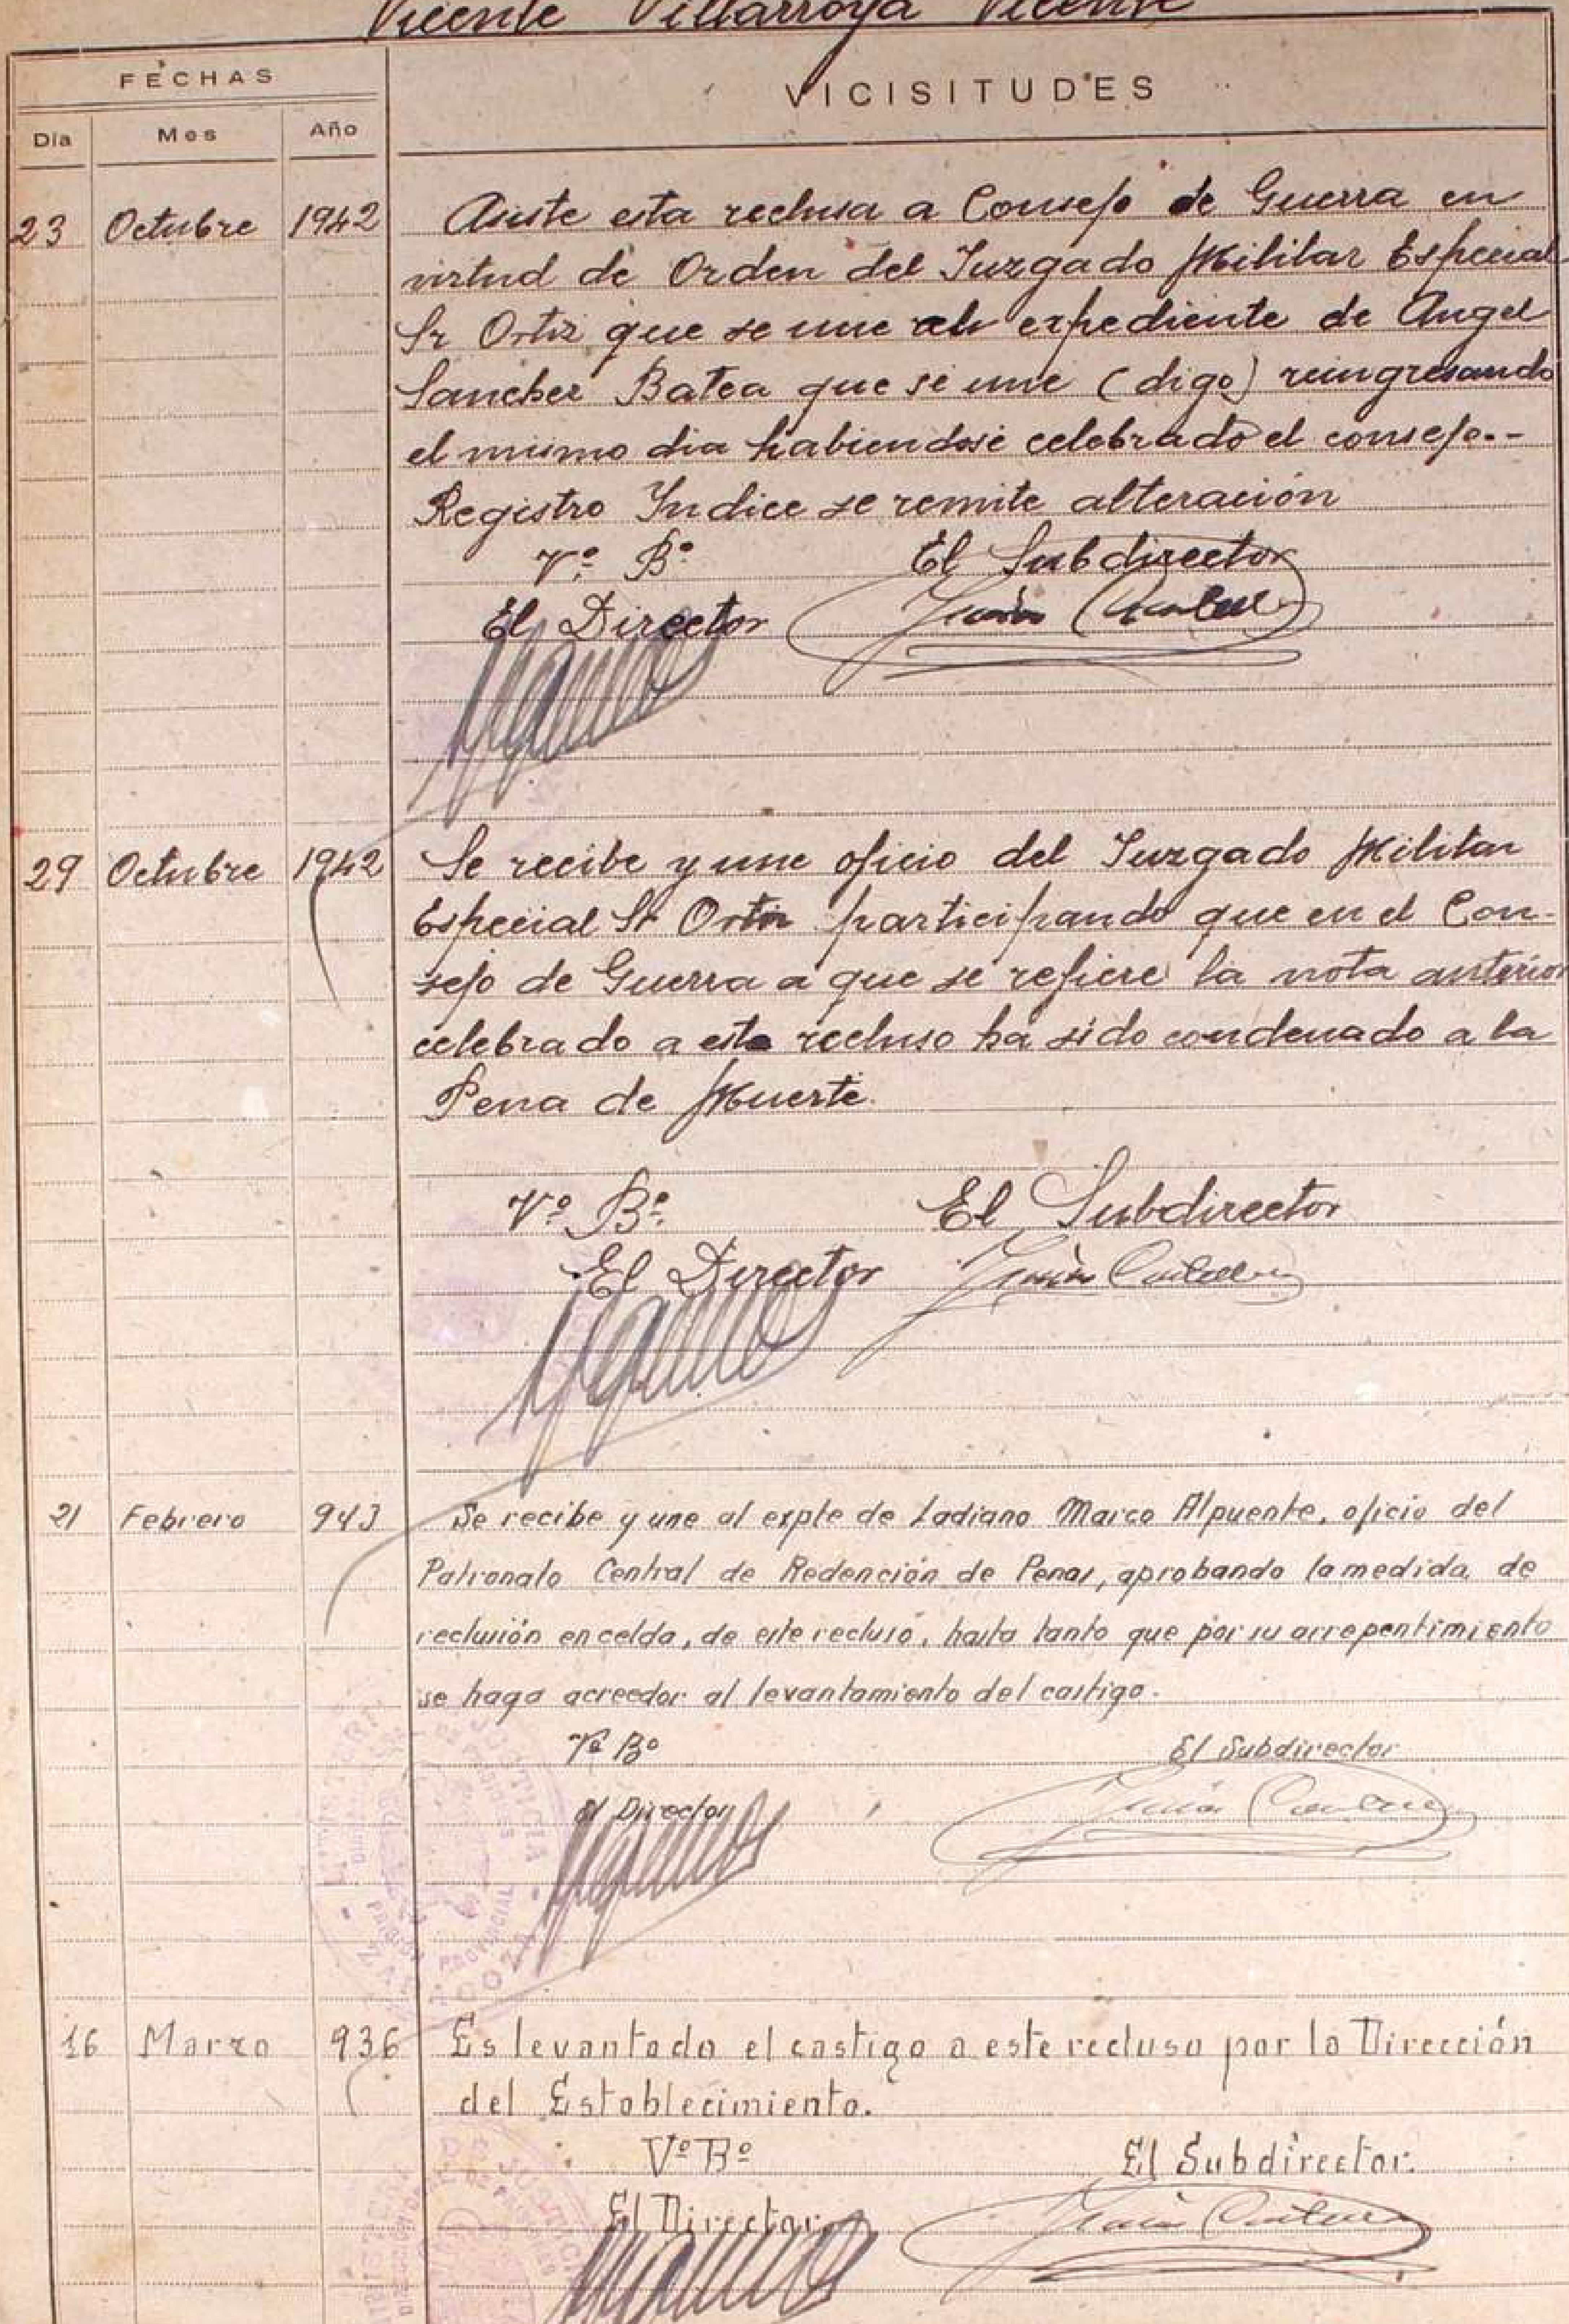 Vicente Villarroya Vicente
FECHAS
VICISITUDES
Día Mes Año
23 Octubre 1942 Asiste esta reclusa a Consejo de Guerra en
virtud de Orden del Juzgado Militar Especial
Sr Ortiz que se une al expediente de Angel
Sanchez Batea que se une (digo) reingresando
el mismo dia habiendose celebrado el consejo.-
Registro Indice se remite alteración
Vº Bº El Subdirector
El Director
29 Octubre 1942 Se recibe y une oficio del Juzgado Militar
Especial Sr Ortiz participando que en el Con-
sejo de Guerra a que se refiere la nota anterior
celebrado a este recluso ha sido condenado a la
Pena de Muerte.
Vº Bº El Subdirector
El Director
21 Febrero 943 Se recibe y une al expte de Ladiano Marco Alpuente, oficio del
Patronato Central de Redención de Penas, aprobando la medida de
reclusión en celda, de este recluso, hasta tanto que por su arrepentimiento
se haga acreedor al levantamiento del castigo.
Vº Bº El Subdirector
El Director
16 Marzo 936 Es levantado el castigo a este recluso por la Dirección
del Establecimiento.
Vº Bº El Subdirector.
El Director